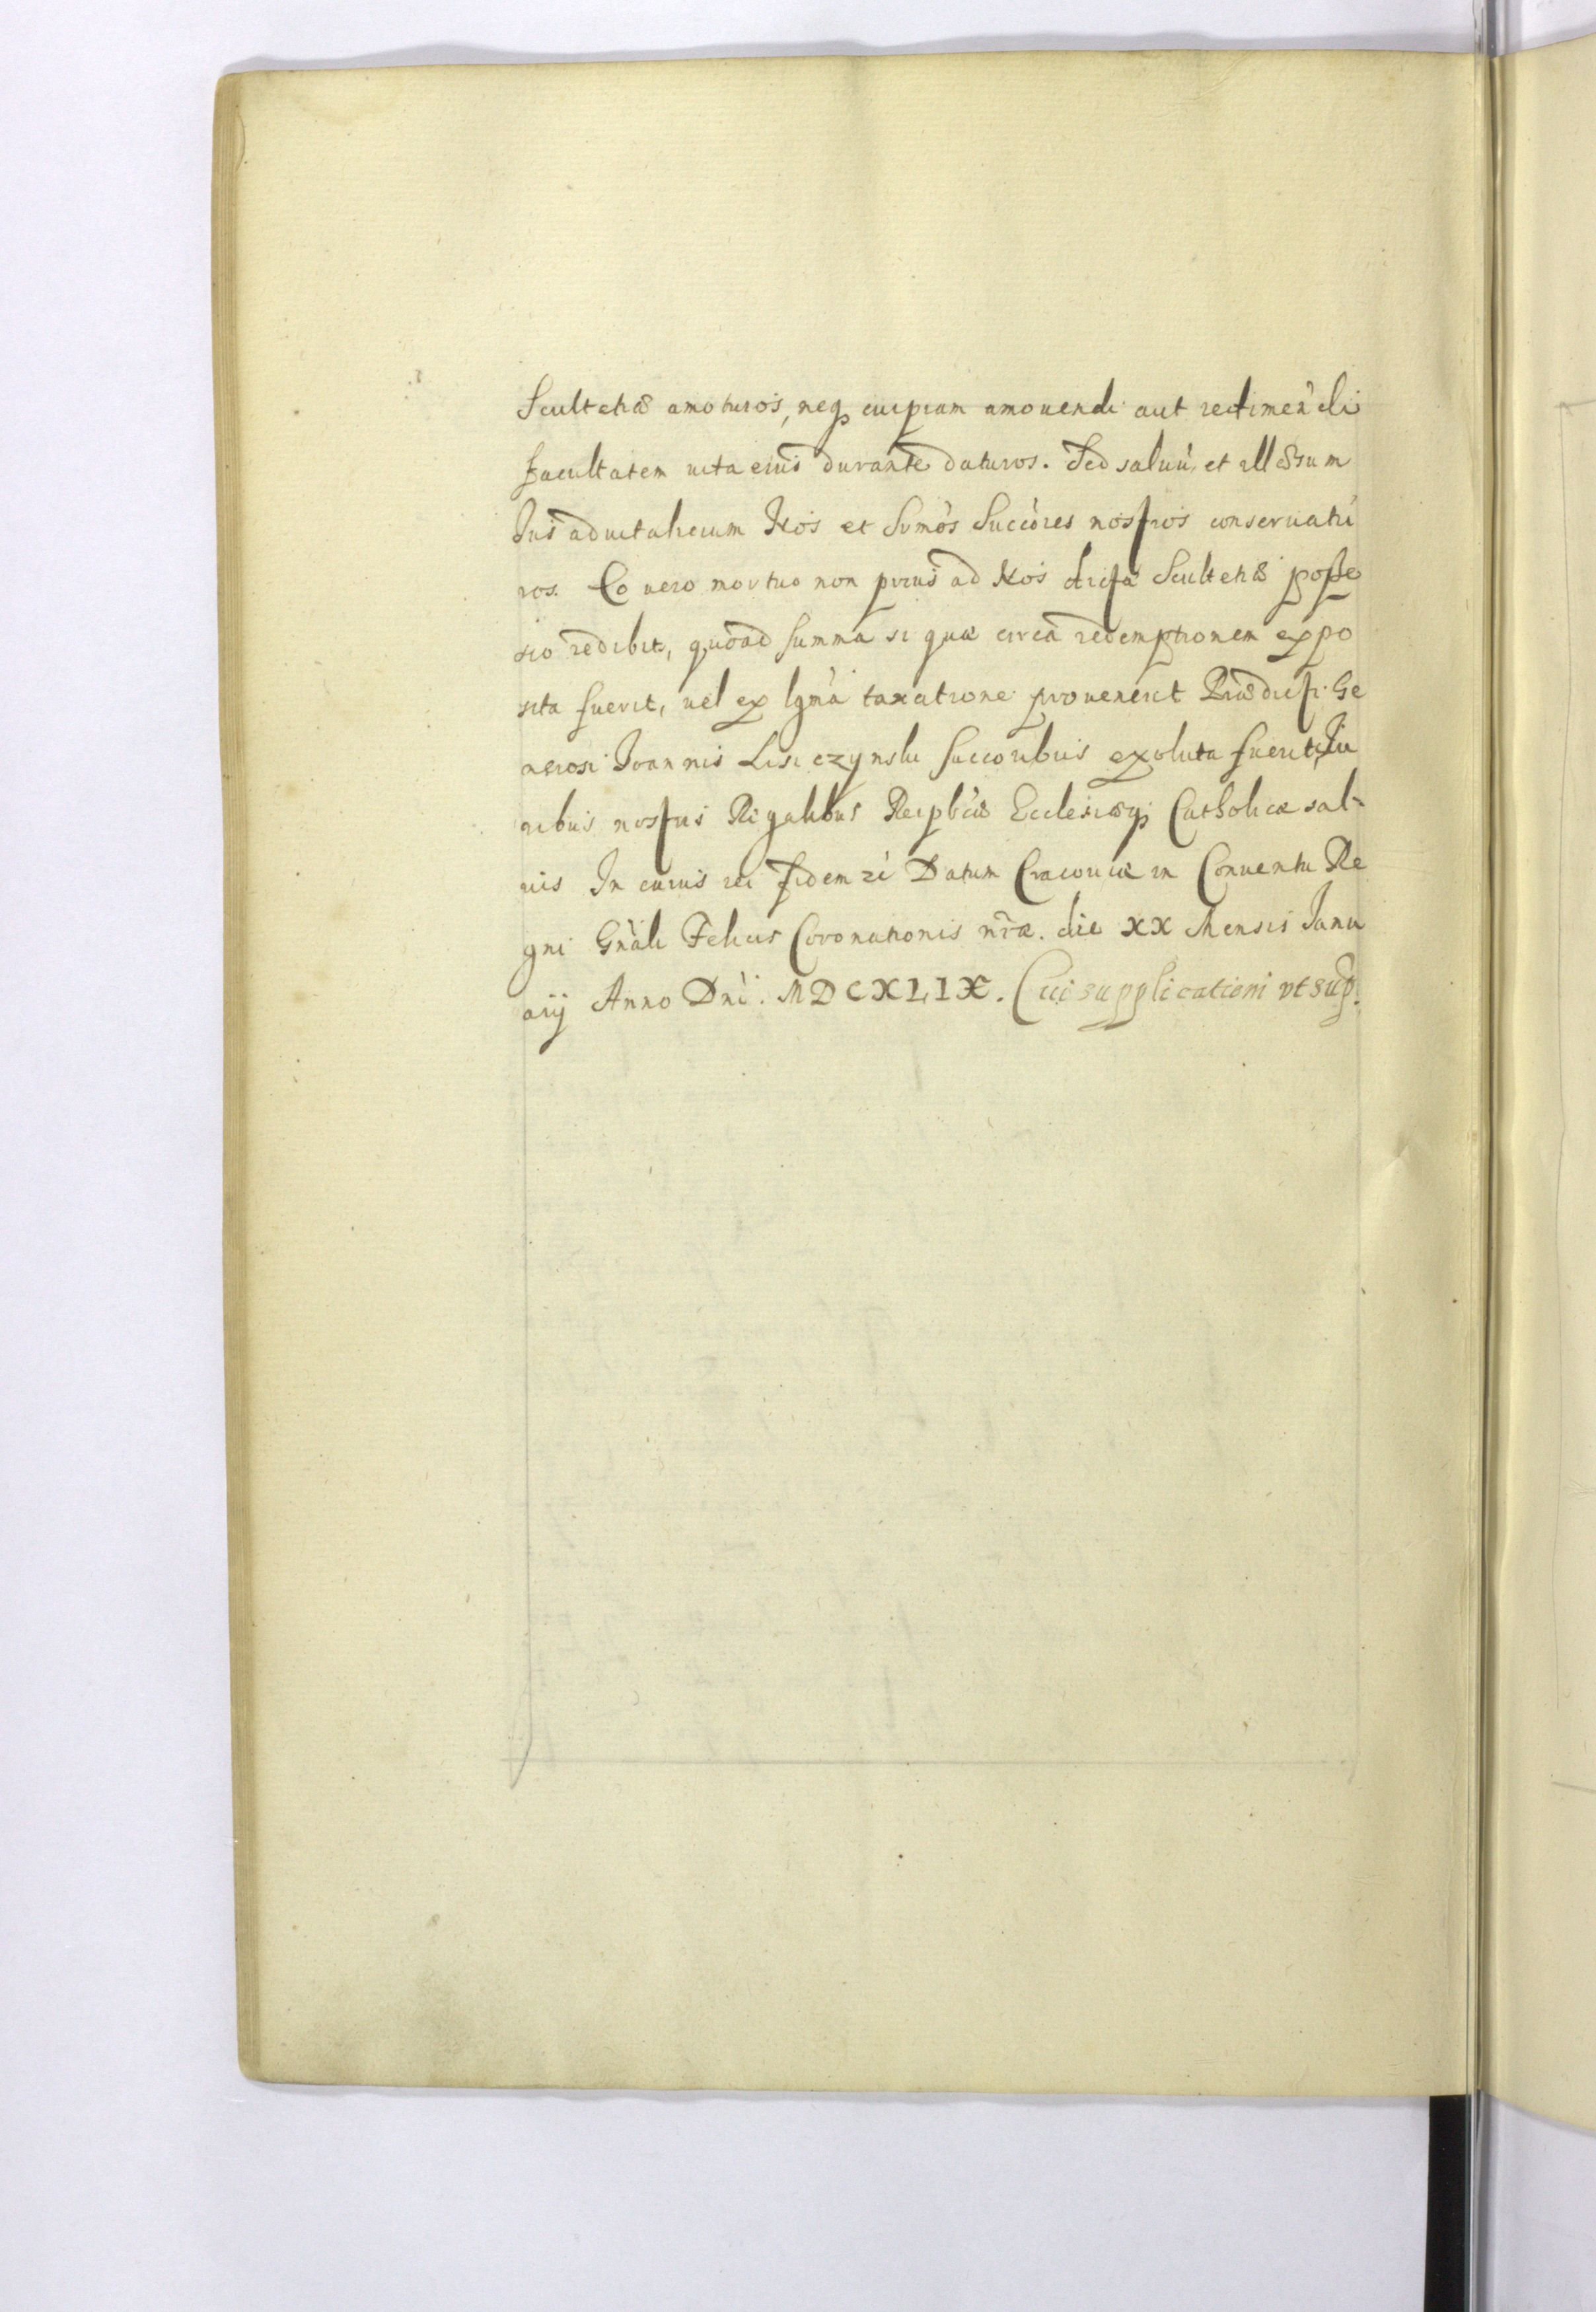 Scultetiæ amoturos, neq; cuipiam amouendi aut redimẽdi
facultatem uita eius durante daturos. Sed saluũ et illæsum
Ius aduitalicium Nos et Srmõs Succõres nostros conseruatu
ros. Eo uero mortuo non prius ad Nos dictæ Scultetiæ posse
sio redibit, quoad summa si quæ circa redemptionem expo
sita fuerit, uel ex lgmã taxatione prouenerit Præ dicti Ge
nerosi Joannis Lisiczynski succoribus exoluta fuerit, Ju
ribus nostris Regalibus Reipbcæ Ecclesiæq; Catholicæ sal-
uis In cuius rei fidem zć Datum Cracouiæ in Conuentu Re
gni Gnãli Felicis Coronationis nrãe. die XX Mensis Janu
arij Anno Dnĩ. MDCXLIX. Cui supplicationi vt sup.